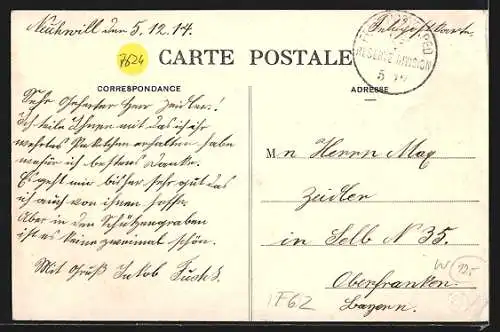 Neuhwill den 5.12.14.
Feldpostkarte.
7624
CARTE POSTALE
RESERVE DIVISION
5
CORRESPONDANCE
ADRESSE
Sehr Geherter Herr Zeidler!
Ich teile Ihnen mit das ich ihr
wehrtes Packtchen erhalten habe
wofür ich bestens Danke.
Es geht mir bisher sehr gut das
ich auch von ihnen hoffe.
Aber in den Schützengraben
ist es keine zweimal schön.
Mit Gruß Jakob Fuchs.
M n Herrn Max
Zeidler
in Selb N 35.
Oberfranken
Bayern.
1F62
W 125